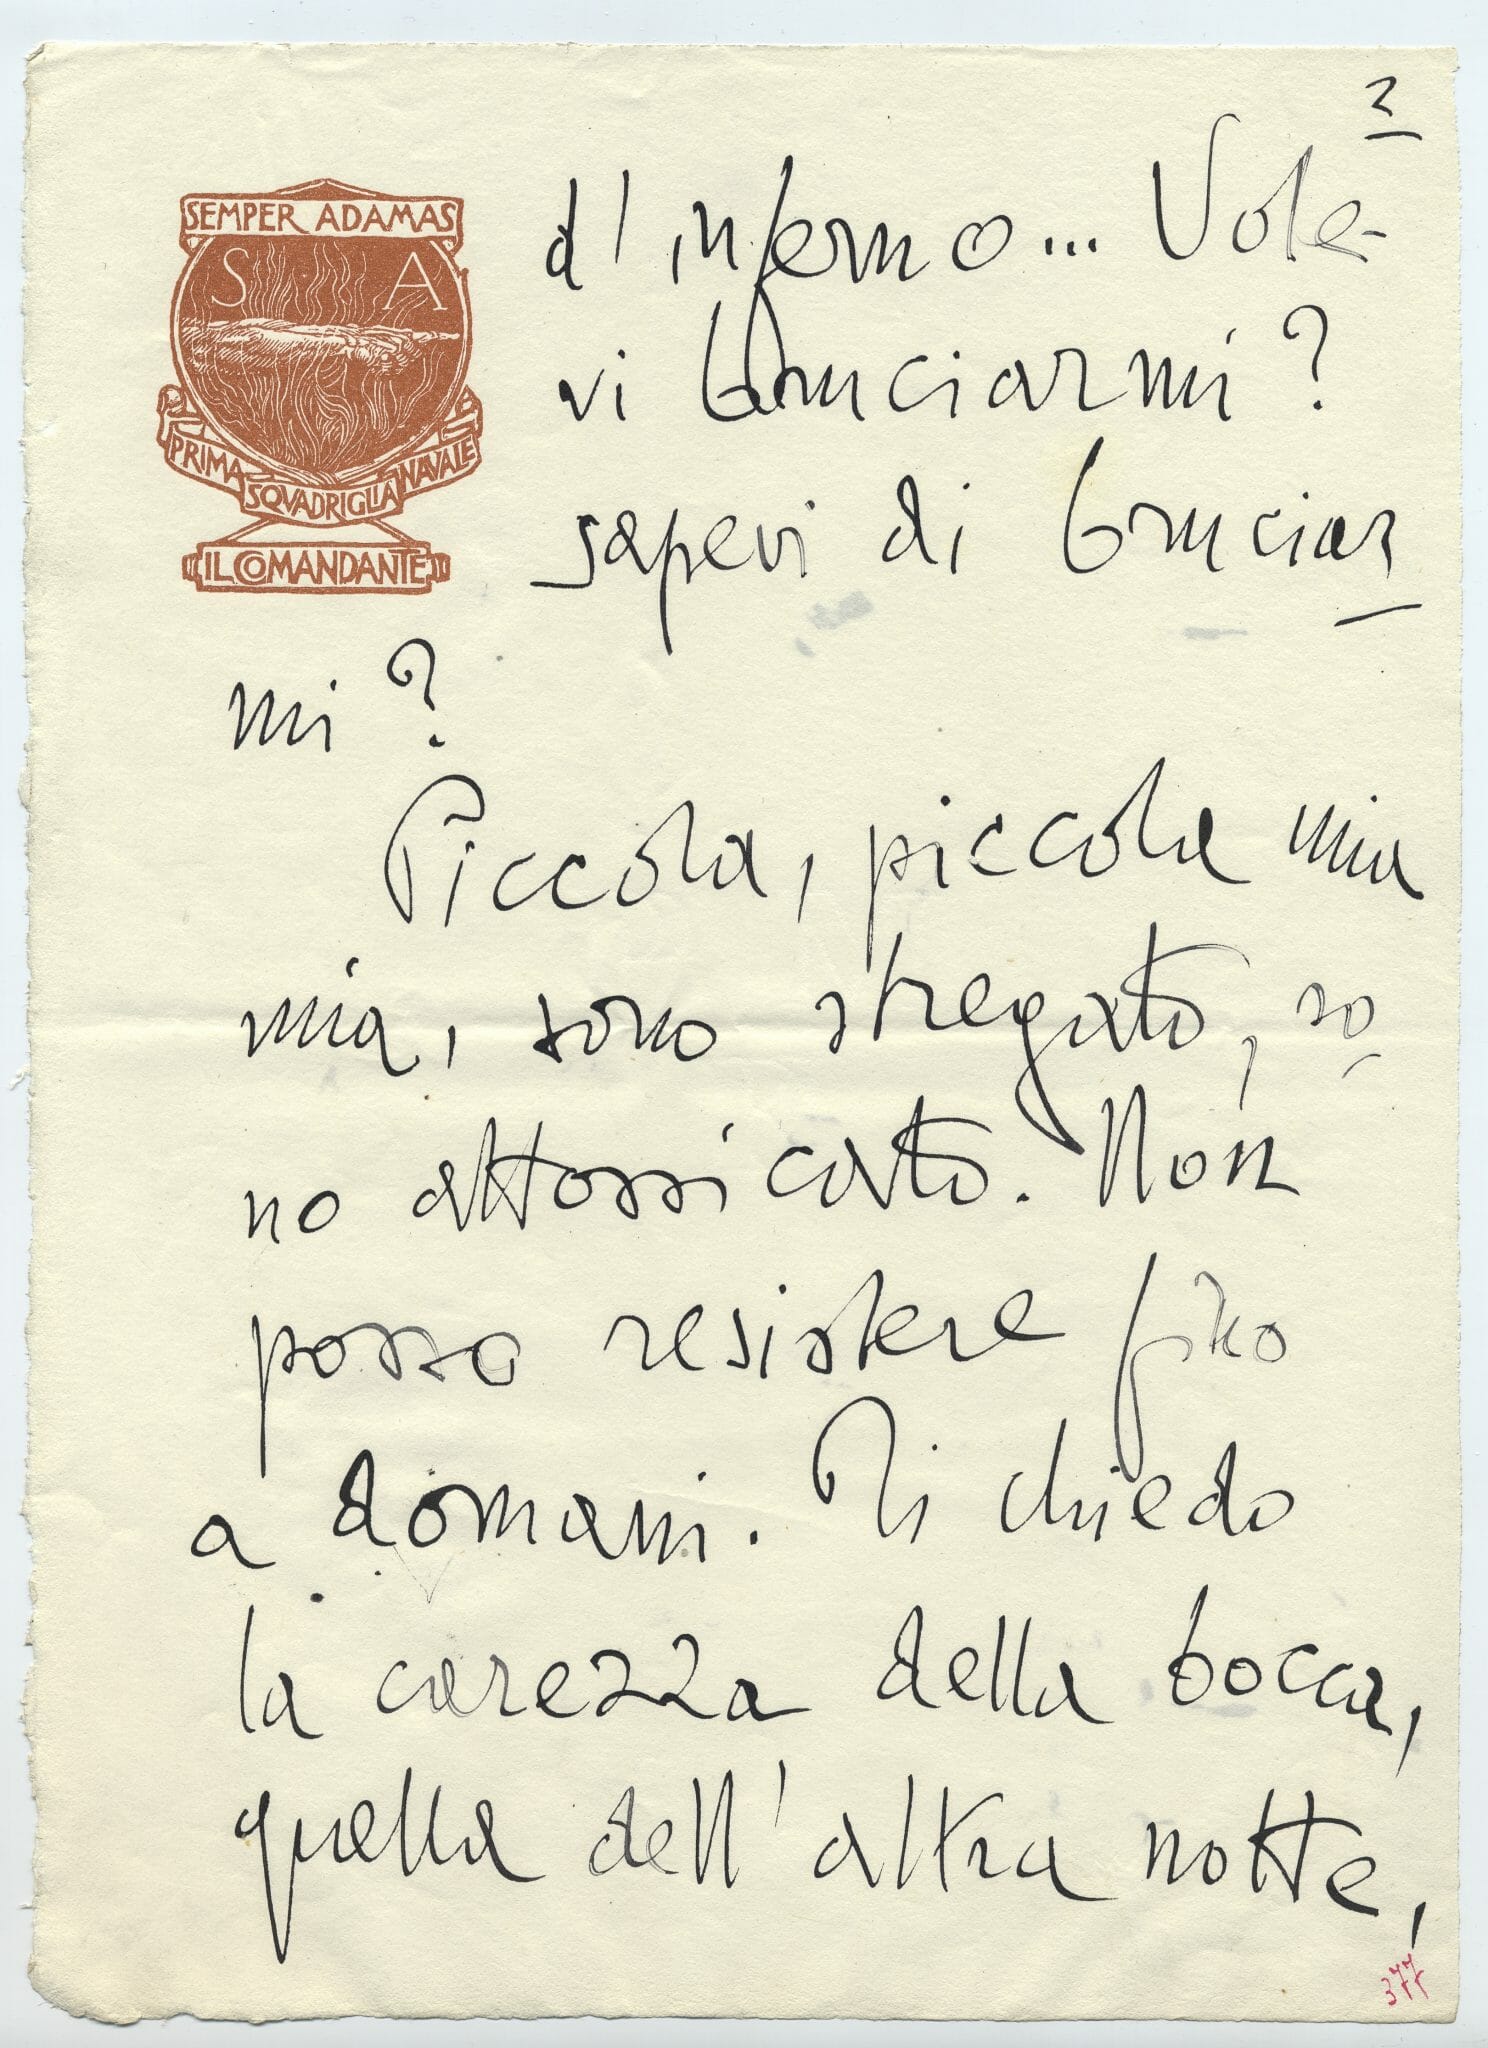 2
SEMPER ADAMAS
S A
PRIMA SQVADRIGLIA NAVALE
IL COMANDANTE
d'inferno... Vole-
vi bruciarmi?
sapevi di bruciar
mi?
Piccola, piccola mia
mia, sono stregato, so
no attossicato. Non
posso resistere fino
a domani. Ti chiedo
la carezza della bocca,
quella dell'altra notte,
377